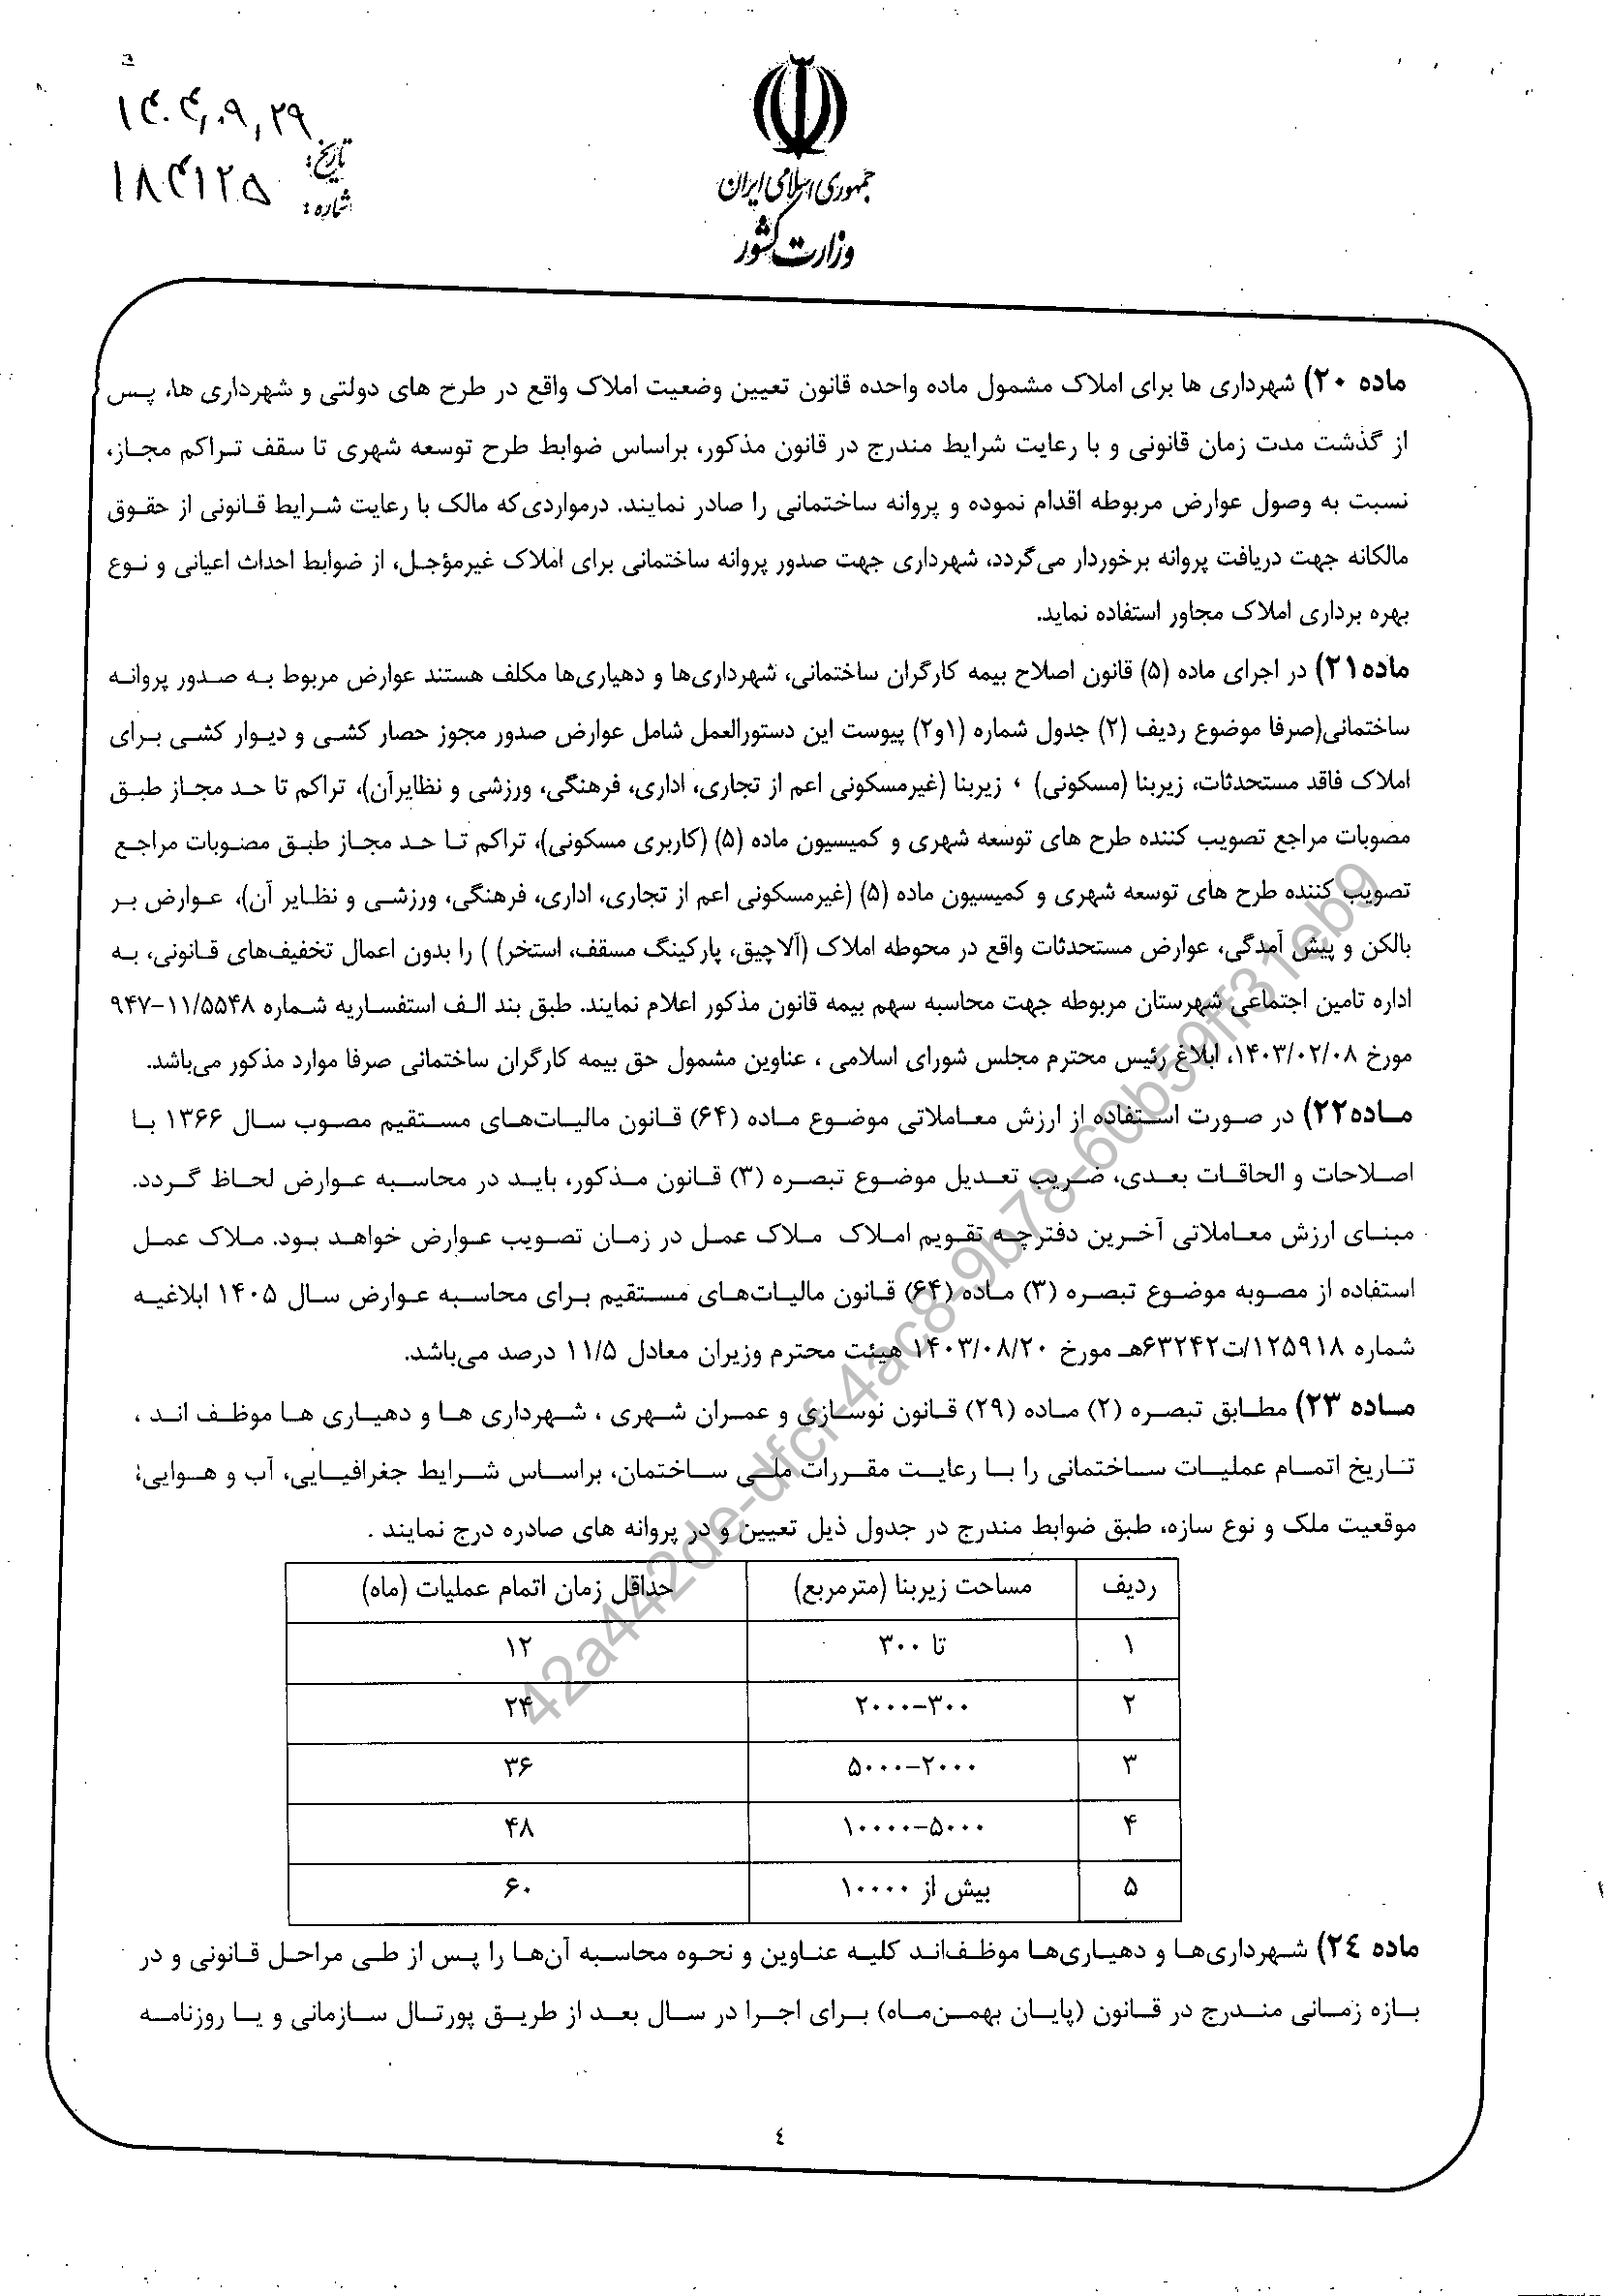 ۱۴۰۴,۰۹,۲۹
تاریخ:
۱۸۴۱۲۵
شماره:
جمهوری اسلامی ایران
وزارت کشور
ماده ۲۰) شهرداری ها برای املاک مشمول ماده واحده قانون تعیین وضعیت املاک واقع در طرح های دولتی و شهرداری ها، پس
از گذشت مدت زمان قانونی و با رعایت شرایط مندرج در قانون مذکور، براساس ضوابط طرح توسعه شهری تا سقف تراکم مجاز،
نسبت به وصول عوارض مربوطه اقدام نموده و پروانه ساختمانی را صادر نمایند. درمواردی‌که مالک با رعایت شرایط قانونی از حقوق
مالکانه جهت دریافت پروانه برخوردار می‌گردد، شهرداری جهت صدور پروانه ساختمانی برای املاک غیرمؤجل، از ضوابط احداث اعیانی و نوع
بهره برداری املاک مجاور استفاده نماید.
ماده۲۱) در اجرای ماده (۵) قانون اصلاح بیمه کارگران ساختمانی، شهرداری‌ها و دهیاری‌ها مکلف هستند عوارض مربوط به صدور پروانه
ساختمانی(صرفا موضوع ردیف (۲) جدول شماره (۱و۲) پیوست این دستورالعمل شامل عوارض صدور مجوز حصار کشی و دیوار کشی برای
املاک فاقد مستحدثات، زیربنا (مسکونی) ، زیربنا (غیرمسکونی اعم از تجاری، اداری، فرهنگی، ورزشی و نظایرآن)، تراکم تا حد مجاز طبق
مصوبات مراجع تصویب کننده طرح های توسعه شهری و کمیسیون ماده (۵) (کاربری مسکونی)، تراکم تا حد مجاز طبق مصوبات مراجع
تصویب کننده طرح های توسعه شهری و کمیسیون ماده (۵) (غیرمسکونی اعم از تجاری، اداری، فرهنگی، ورزشی و نظایر آن)، عوارض بر
بالکن و پیش آمدگی، عوارض مستحدثات واقع در محوطه املاک (آلاچیق، پارکینگ مسقف، استخر) ) را بدون اعمال تخفیف‌های قانونی، به
اداره تامین اجتماعی شهرستان مربوطه جهت محاسبه سهم بیمه قانون مذکور اعلام نمایند. طبق بند الف استفساریه شماره ۹۴۷-۱۱/۵۵۴۸
مورخ ۱۴۰۳/۰۲/۰۸، ابلاغ رئیس محترم مجلس شورای اسلامی ، عناوین مشمول حق بیمه کارگران ساختمانی صرفا موارد مذکور می‌باشد.
ماده۲۲) در صورت استفاده از ارزش معاملاتی موضوع ماده (۶۴) قانون مالیات‌های مستقیم مصوب سال ۱۳۶۶ با
اصلاحات و الحاقات بعدی، ضریب تعدیل موضوع تبصره (۳) قانون مذکور، باید در محاسبه عوارض لحاظ گردد.
مبنای ارزش معاملاتی آخرین دفترچه تقویم املاک ملاک عمل در زمان تصویب عوارض خواهد بود. ملاک عمل
استفاده از مصوبه موضوع تبصره (۳) ماده (۶۴) قانون مالیات‌های مستقیم برای محاسبه عوارض سال ۱۴۰۵ ابلاغیه
شماره ۱۲۵۹۱۸/ت۶۳۲۴۲هـ مورخ ۱۴۰۳/۰۸/۲۰ هیئت محترم وزیران معادل ۱۱/۵ درصد می‌باشد.
ماده ۲۳) مطابق تبصره (۲) ماده (۲۹) قانون نوسازی و عمران شهری ، شهرداری ها و دهیاری ها موظف اند ،
تاریخ اتمام عملیات ساختمانی را با رعایت مقررات ملی ساختمان، براساس شرایط جغرافیایی، آب و هوایی؛
موقعیت ملک و نوع سازه، طبق ضوابط مندرج در جدول ذیل تعیین و در پروانه های صادره درج نمایند .
ردیف مساحت زیربنا (مترمربع) حداقل زمان اتمام عملیات (ماه)
۱ تا ۳۰۰ ۱۲
۲ ۳۰۰-۲۰۰۰ ۲۴
۳ ۲۰۰۰-۵۰۰۰ ۳۶
۴ ۵۰۰۰-۱۰۰۰۰ ۴۸
۵ بیش از ۱۰۰۰۰ ۶۰
ماده ۲٤) شهرداری‌ها و دهیاری‌ها موظف‌اند کلیه عناوین و نحوه محاسبه آن‌ها را پس از طی مراحل قانونی و در
بازه زمانی مندرج در قانون (پایان بهمن‌ماه) برای اجرا در سال بعد از طریق پورتال سازمانی و یا روزنامه
٤
42a442de-dfcf-4ac8-9b78-60b59ff31eb9